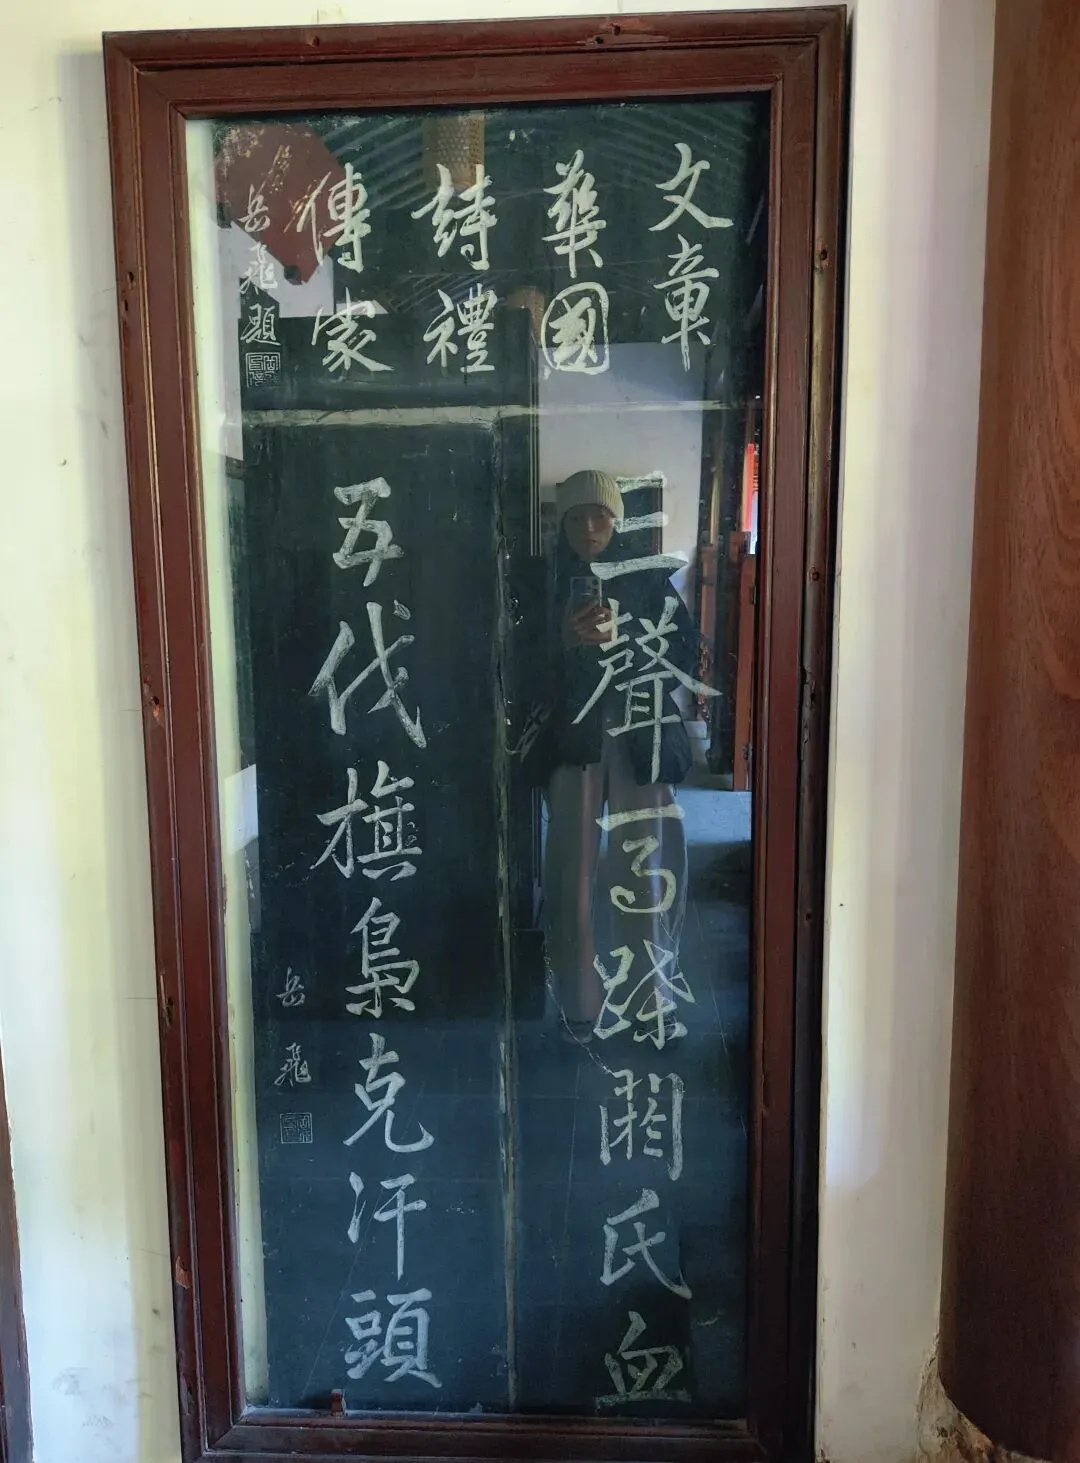 文章
華國
詩禮
傳家
岳飛題
三聲一弓蹀閼氏血
五伐旗梟克汗頭
岳飛